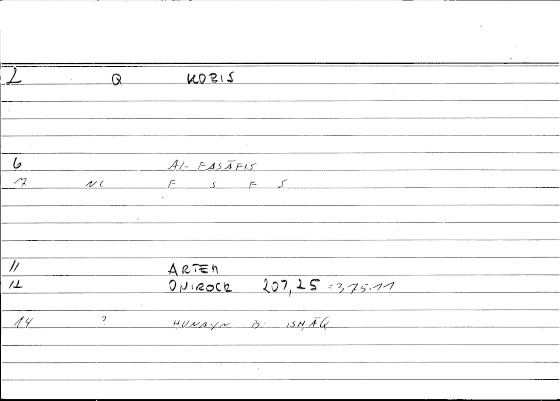 2 Q KOBIS
6 Al- FASĀFIS
17 NC F S F S
11 ARTEM
12 ONIROCR 207,25 = 375.11
14 ? HUNAYN B. ISḤĀQ